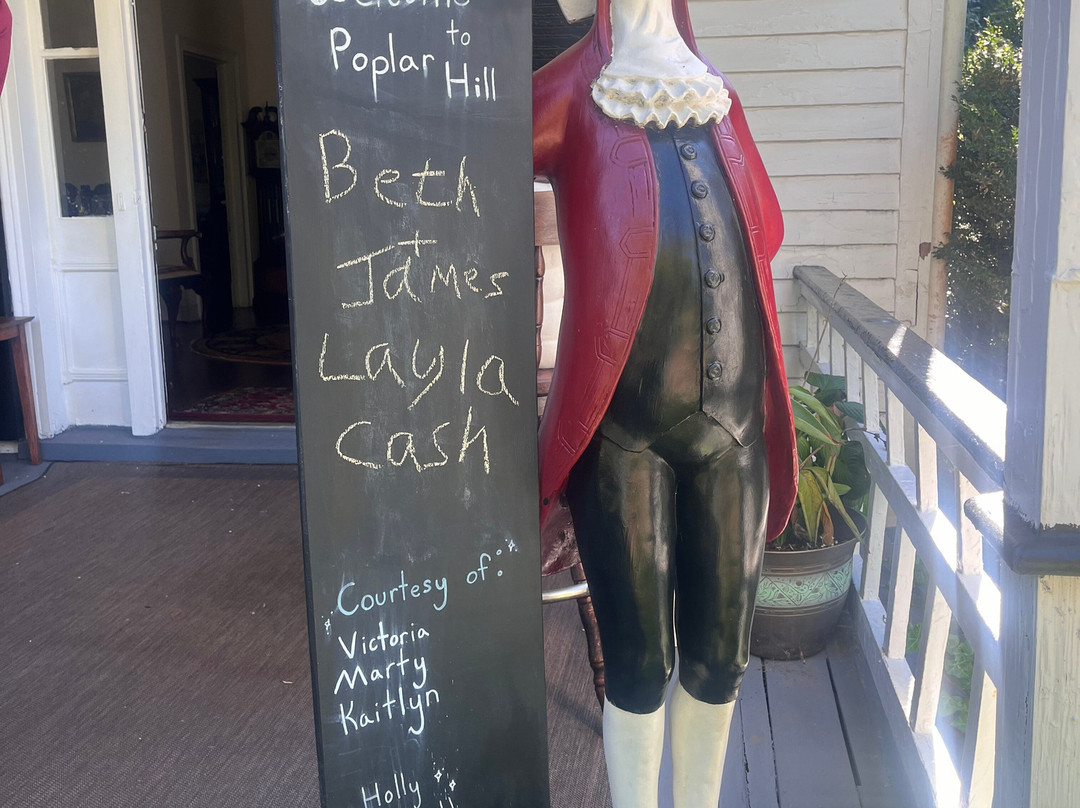 Welcome
to
Poplar
Hill
Beth
James
Layla
Cash
Courtesy of:
Victoria
Marty
Kaitlyn
Holly